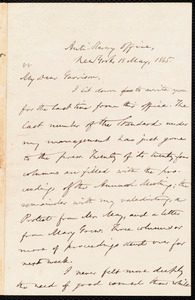 Anti-Slavery Office,
New York, 13 May, 1865.
My Dear Garrison,
I sit down to write you
for the last time from this office. The
last number of the Standard under
my management has just gone
to the press. Twenty of its twenty-four
columns are filled with the pro-
ceedings of the Annual Meeting; the
remainder with my valedictory, a
Protest from Mr. May, and a letter
from May Grew. Three columns or
more of proceedings went over for
next week.
I never felt more deeply
the need of good counsel than while